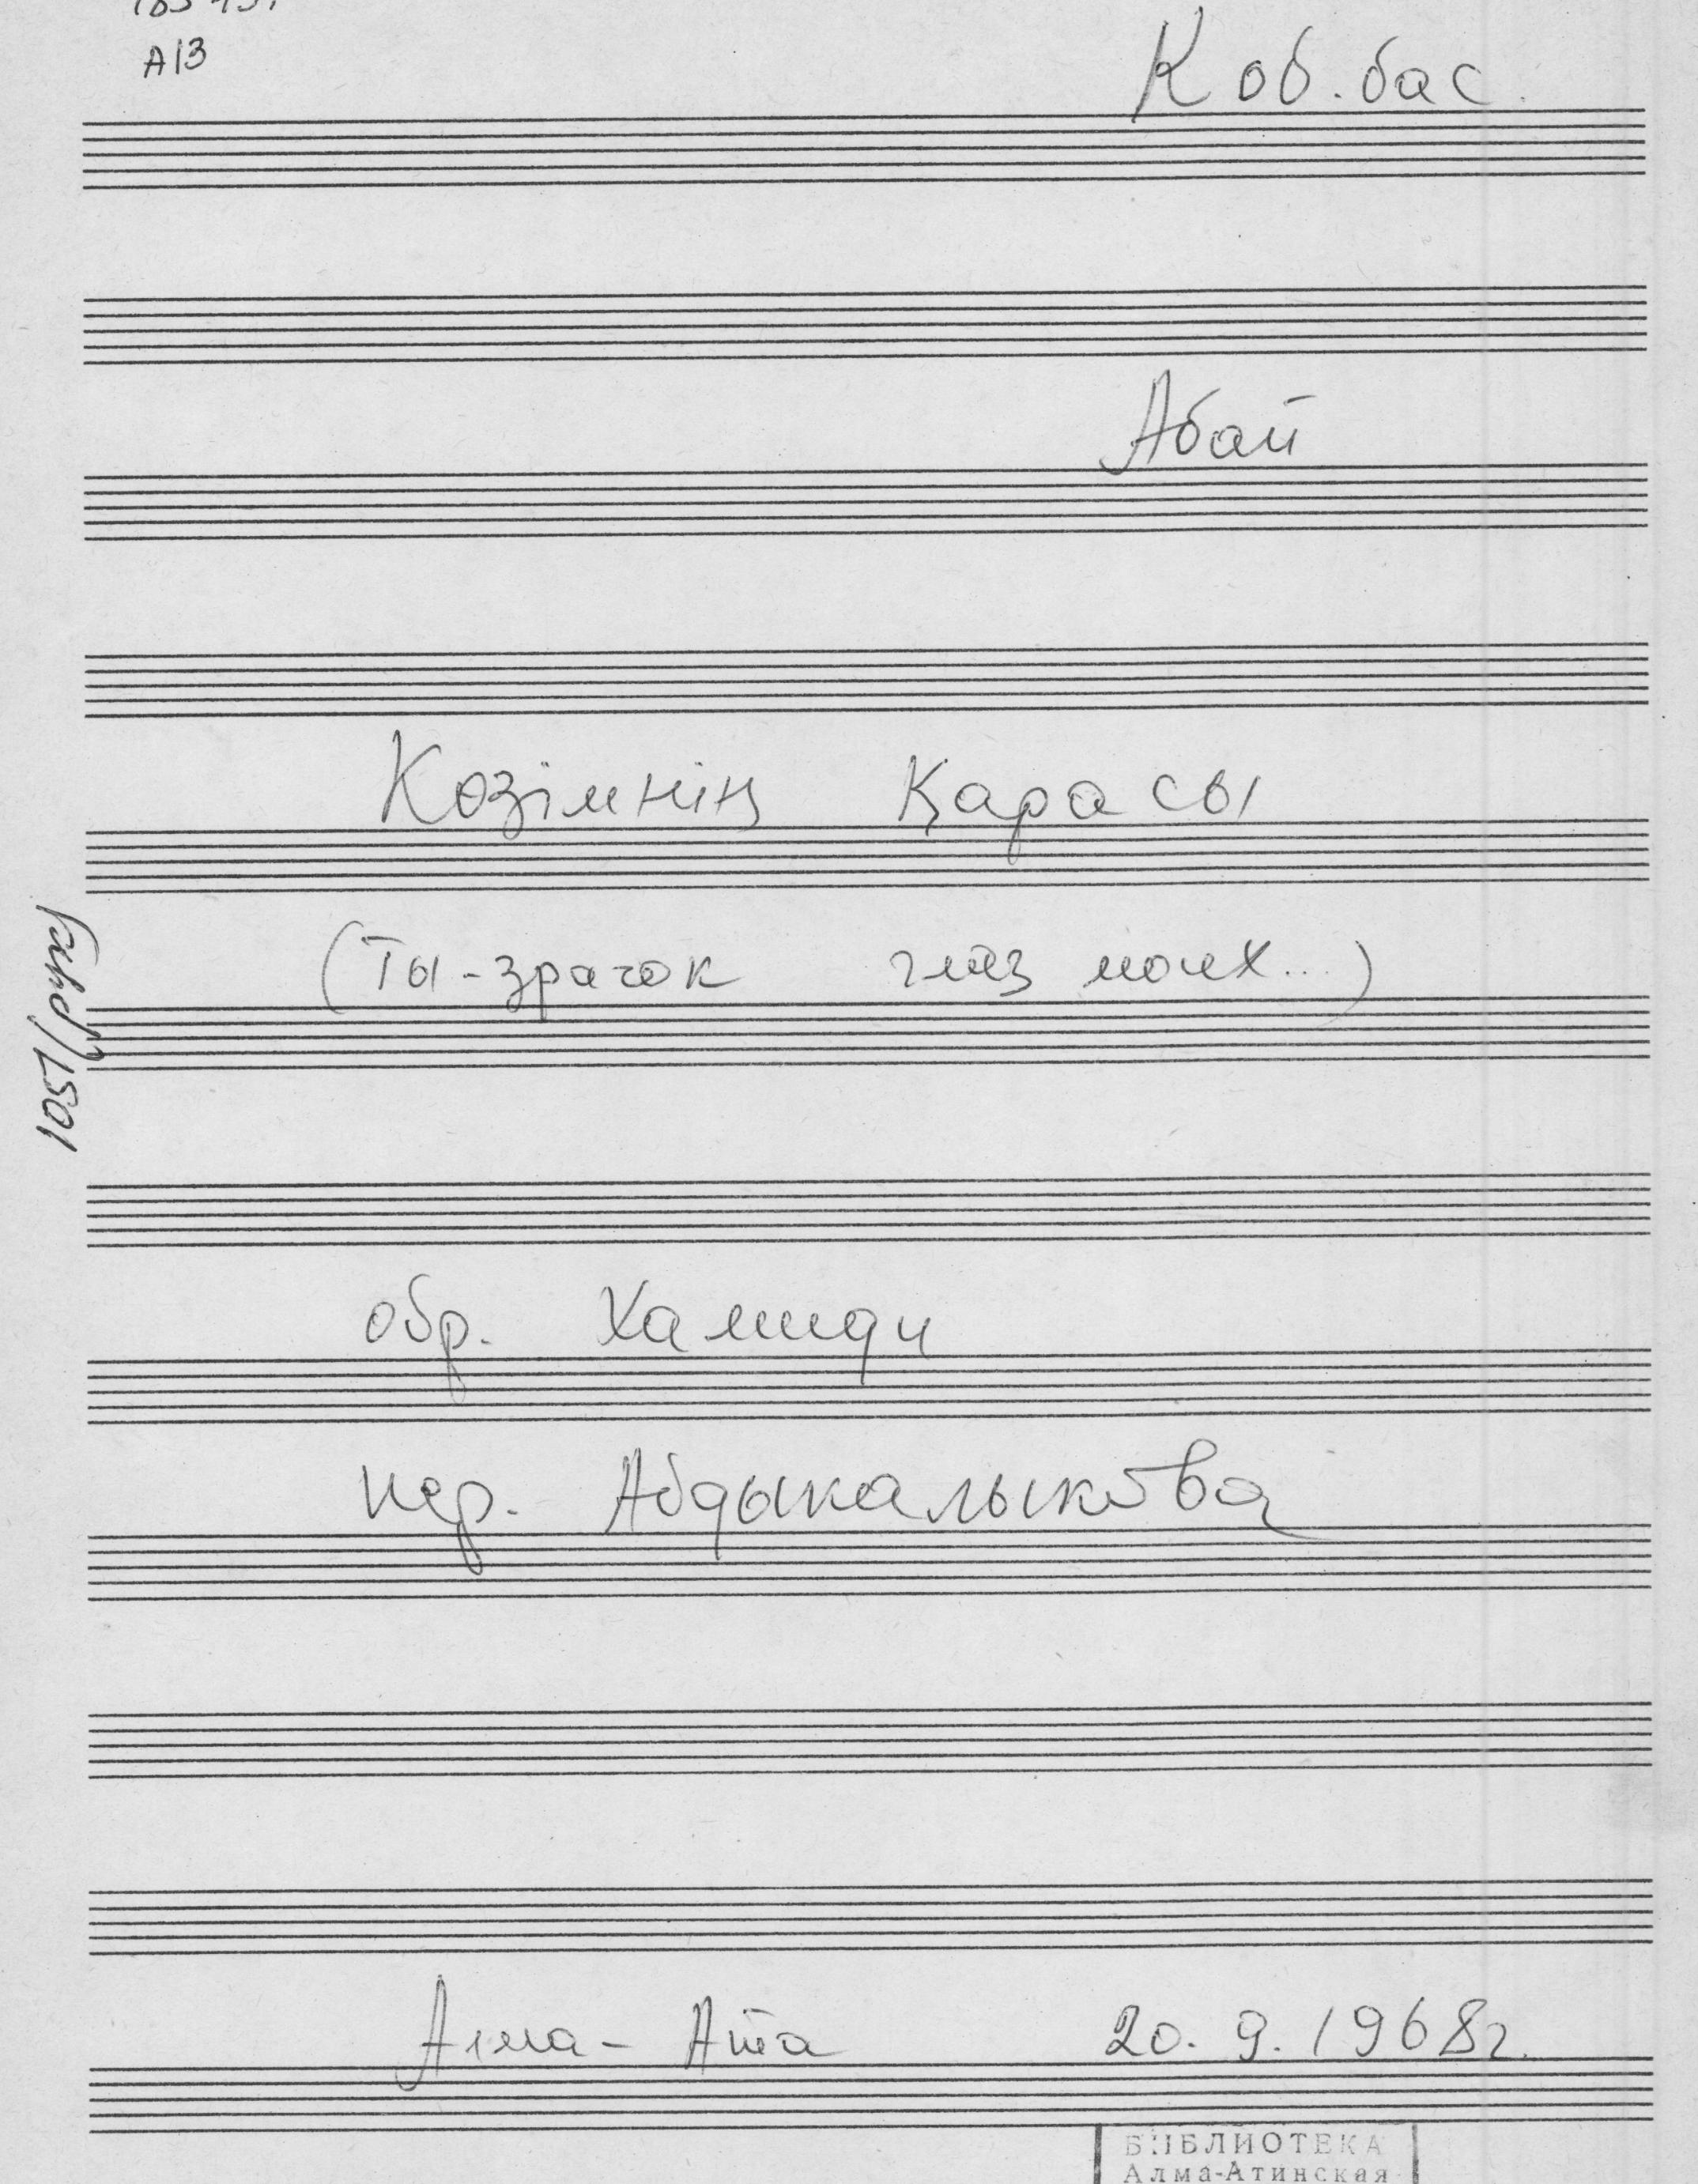 А13
Коб. бас.
Абай
Козімнің Қарасы
(Ты - зрачок глаз моих...)
обр. Хамиди
пер. Абдыкалыкова
Алма - Ата 20. 9. 1968г.
БИБЛИОТЕКА
Алма-Атинская